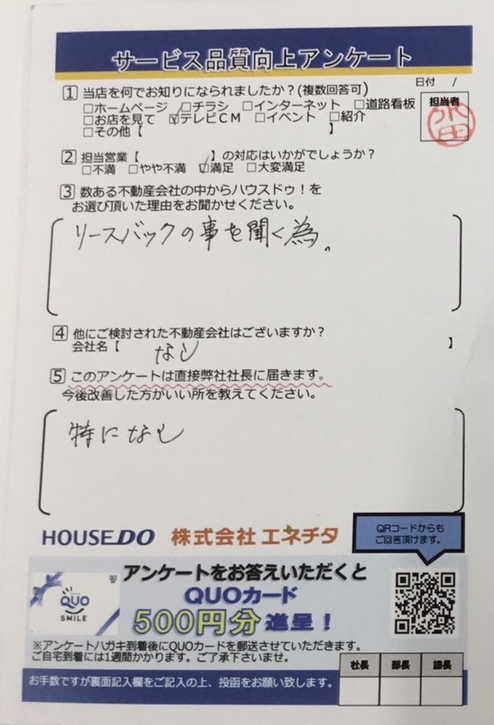 サービス品質向上アンケート
日付 /
1 当店を何でお知りになられましたか?(複数回答可)
□ホームページ □チラシ □インターネット □道路看板
□お店を見て ☑テレビCM □イベント □紹介
□その他【 】
担当者
2 担当営業【 】の対応はいかがでしょうか?
□不満 □やや不満 ☑満足 □大変満足
3 数ある不動産会社の中からハウスドゥ!を
お選び頂いた理由をお聞かせください。
リースバックの事を聞く為。
4 他にご検討された不動産会社はございますか?
会社名【 なし 】
5 このアンケートは直接弊社社長に届きます。
今後改善した方がいい所を教えてください。
特になし
HOUSE DO 株式会社 エネチタ
QRコードからも
ご回答頂けます。
QUO
SMILE
アンケートをお答えいただくと
QUOカード
500円分 進呈!
※アンケートハガキ到着後にQUOカードを郵送させていただきます。
ご自宅到着には1週間かかります。ご了承下さいませ。
社長 部長 課長
お手数ですが裏面記入欄をご記入の上、投函をお願い致します。